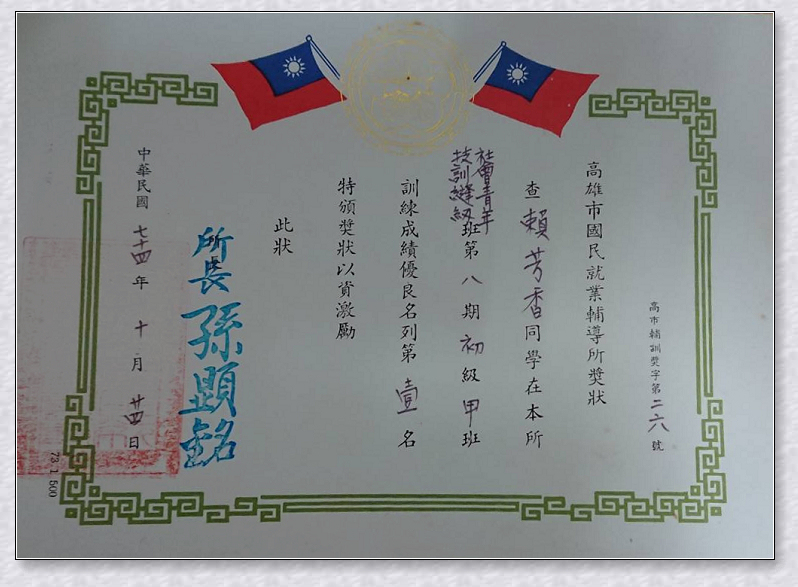 高雄市國民就業輔導所獎狀
高市輔訓獎字第二六號
查賴芳香同學在本所
社會青年
技訓縫紉班第八期初級甲班
訓練成績優良名列第壹名
特頒獎狀以資激勵
此狀
所長孫顯銘
中華民國七十四年十月廿四日
73.1.500